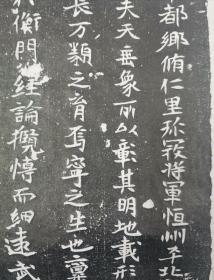 都鄉脩仁里孫𡨥將軍恒州平北
夫天垂象所以彰其明地載形
長万類之育焉寧之生也稟
於衡門經論攬博而細遠武